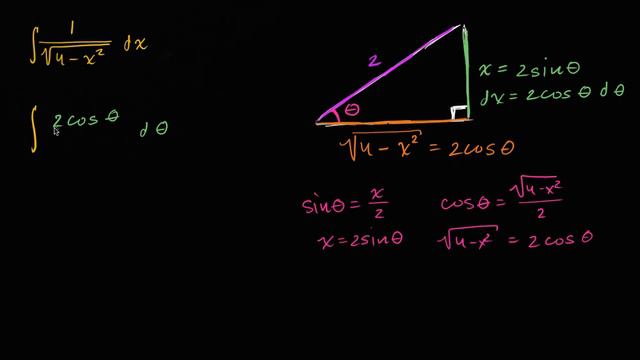 ∫ 1/√(4-x²) dx
∫ 2cosθ dθ
2
θ
x = 2sinθ
dx = 2cosθ dθ
√(4-x²) = 2cosθ
sinθ = x/2
cosθ = √(4-x²)/2
x = 2sinθ
√(4-x²) = 2cosθ